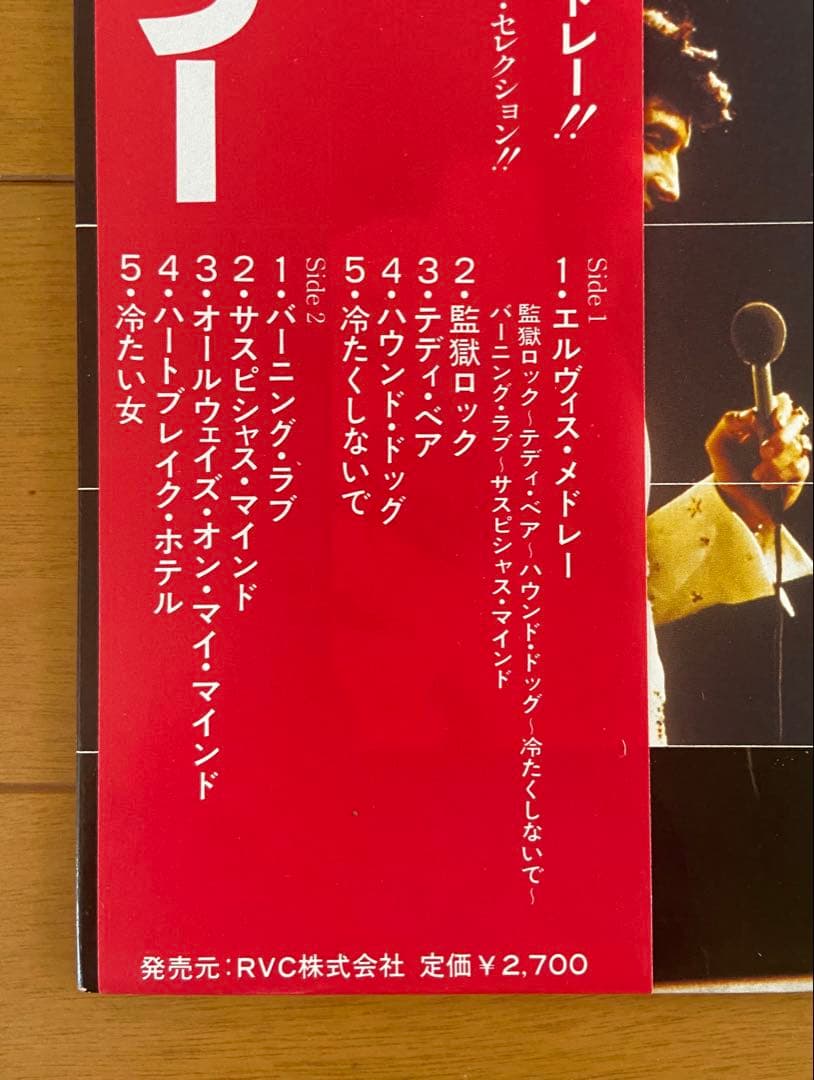 ドレー!!
・セレクション!!
Side 1
1・エルヴィス・メドレー
監獄ロック〜テディ・ベア〜ハウンド・ドッグ〜冷たくしないで〜
バーニング・ラブ〜サスピシャス・マインド
2・監獄ロック
3・テディ・ベア
4・ハウンド・ドッグ
5・冷たくしないで
Side 2
1・バーニング・ラブ
2・サスピシャス・マインド
3・オールウェイズ・オン・マイ・マインド
4・ハートブレイク・ホテル
5・冷たい女
発売元:RVC株式会社 定価¥2,700